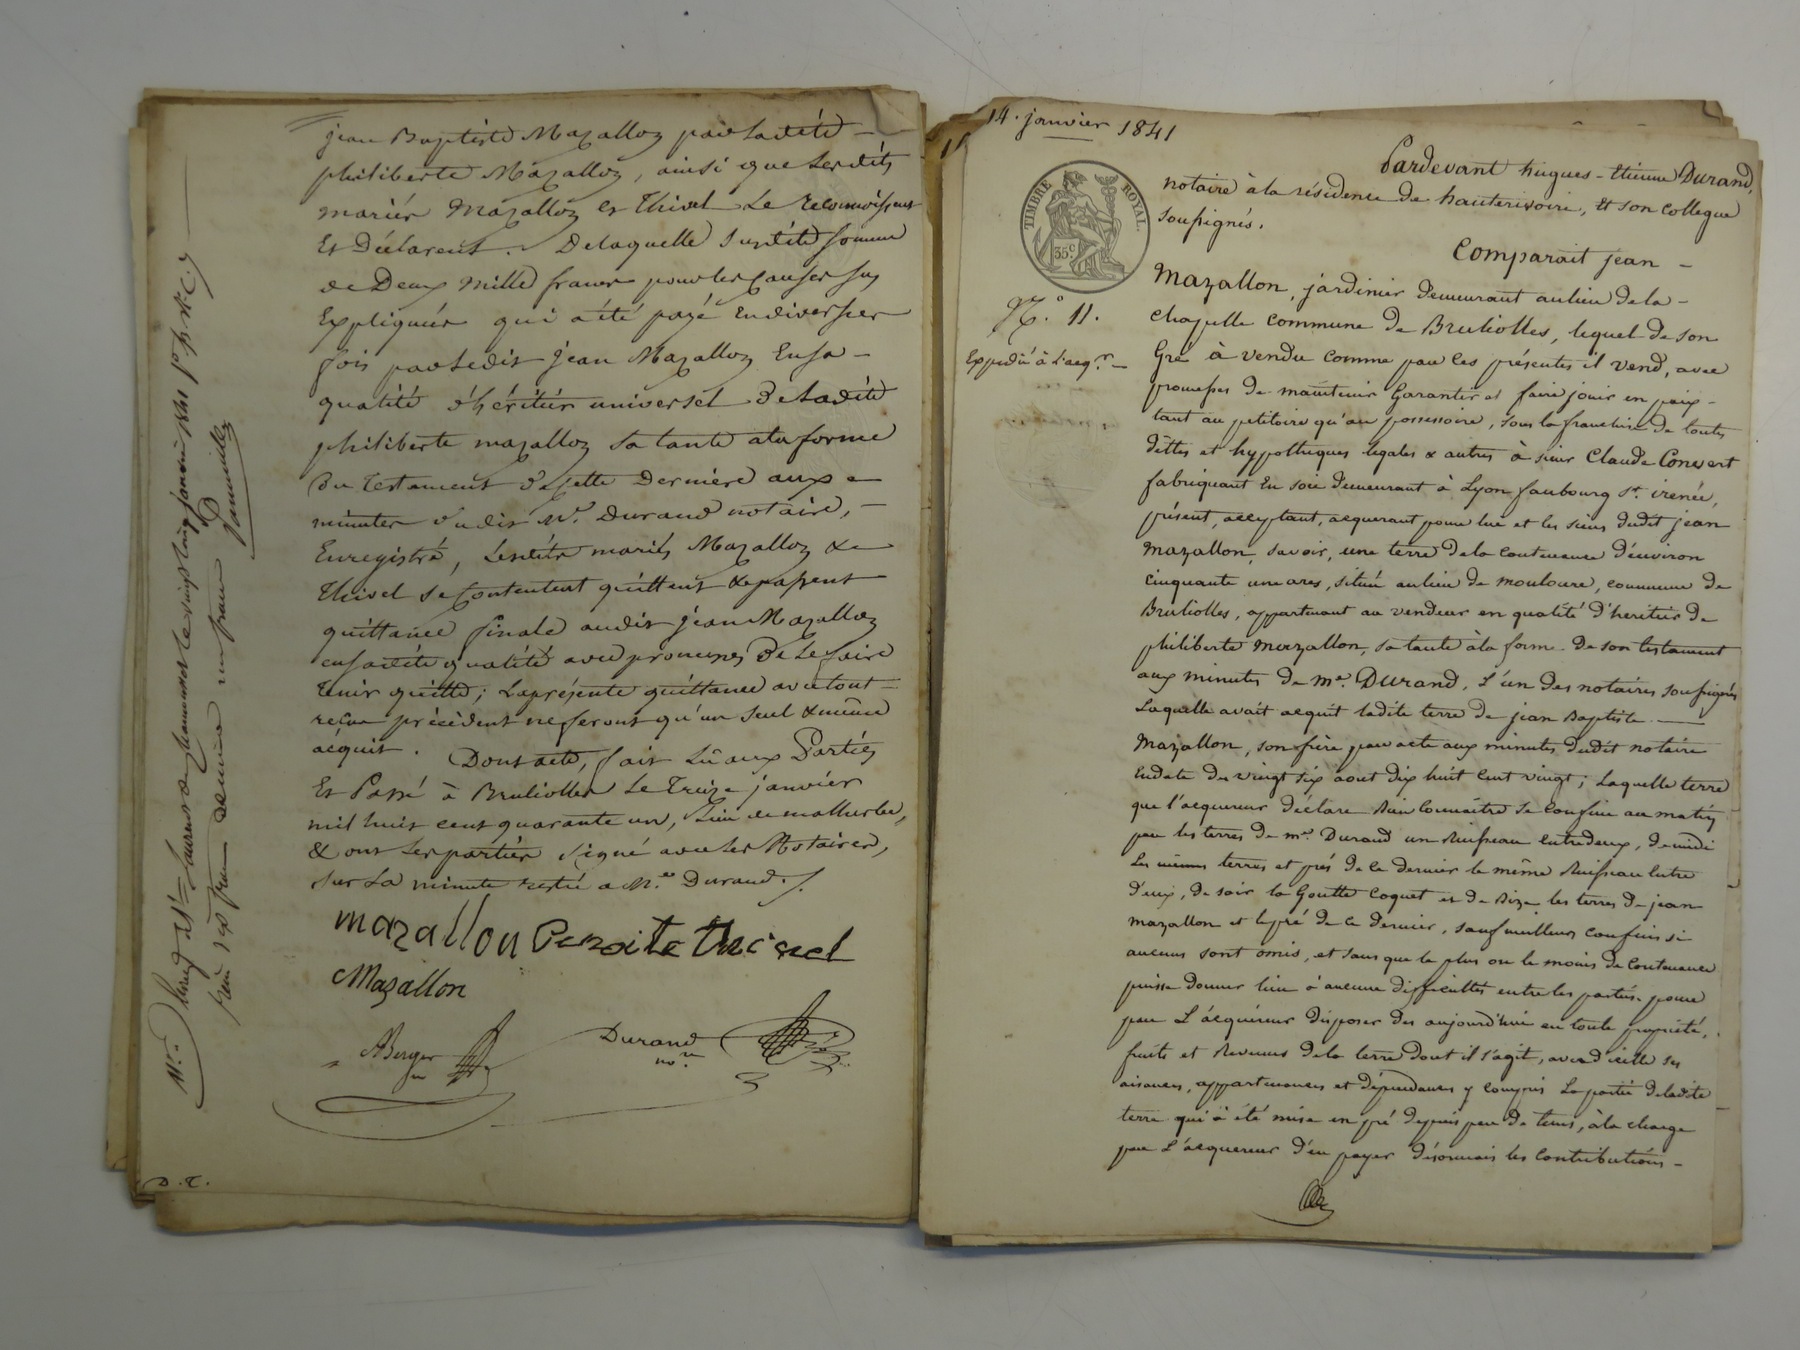 jean Baptiste Mazallon par ladite
philiberte Mazallon, ainsi que lesdits
mariés Mazallon et Thivel le reconnoissent
Et Déclarent. Delaquelle susdite somme
de Deux mille francs pour les causes sus
Expliquées qui a été payé en diverses
fois par ledit jean Mazallon En sa
qualité d'héritier universel de ladite
philiberte mazallon sa tante a la forme
Du Testament de cette dernière aux
minutes dudit Me. Durand notaire,
Enregistré, lesdits mariés Mazallon &
Thivel se contentent quittent & passent
quittance finale audit jean Mazallon
en sadite qualité avec promesses de le faire
tenir quitte; la présente quittance avec tout
reçu précédent ne feront qu'un seul & même
acquit. Dont acte, fait lû aux Parties
Et Passé à Brulioles le Treize janvier
mil huit cent quarante un, lieu de malherbe,
& ont les parties signé avec les Notaires,
sur la minute restée a Me. Durand./.
mazallon Benoite thivel
Mazallon
ABerger
Durand
nore
Enreg. à St. Laurent de chamousset le vingt cinq janvier 1841
reçu dix francs décime un franc
D. T.
14. janvier 1841
TIMBRE ROYAL.
35c.
No. 11.
Expédié à l'acqr.
Pardevant hugues-Etienne Durand,
notaire à la résidence de hauterivoire, Et son collegue
soussignés.
Comparait jean
Mazallon, jardinier demeurant au lieu de la
chapelle commune de Brulioles, lequel de son
Gré à vendu comme par ces présentes il vend, avec
promesses de maintenir Garantir et faire jouir en paix
tant au petitoire qu'au possessoire, sous la franchise de toutes
dettes et hypothèques legales & autres à sieur Claude Convert
fabriquant En soie demeurant à Lyon faubourg St. irenée,
présent, acceptant, acquerant pour lui et les siens dudit jean
Mazallon, savoir, une terre de la contenance d'environ
cinquante une ares, située au lieu de mouloure, commune de
Brulioles, appartenant au vendeur en qualité d'heritier de
philiberte mazallon, sa tante à la forme de son testament
aux minutes de me. Durand, l'un des notaires soussignés
Laquelle avait acquit ladite terre de jean Baptiste
Mazallon, son frère par acte aux minutes dudit notaire
En date du vingt six aout dix huit cent vingt; Laquelle terre
que l'acquereur déclare Bien Connaitre se confine au matin
par les terres de me. Durand un Ruisseau entredeux, de midi
les mêmes terres et prés de ce dernier le même Ruisseau entre
d'eux, de soir la Goutte Coquet et de Bize les terres de jean
mazallon et le pré de ce dernier, sauf meilleurs confins si
aucuns sont omis, et sans que le plus ou le moins de contenance
puisse donner lieu à aucune difficultés entre les parties pour
par l'acquéreur disposer des aujourd'hui en toute propriété,
fruits et Revenus de la terre dont il s'agit, avec d'icelle ses
aisances, appartenances et dépendances y compris la partie de ladite
terre qui à été mise en pré depuis peu de tems, à la charge
par l'acquereur d'en payer désormais les contributions